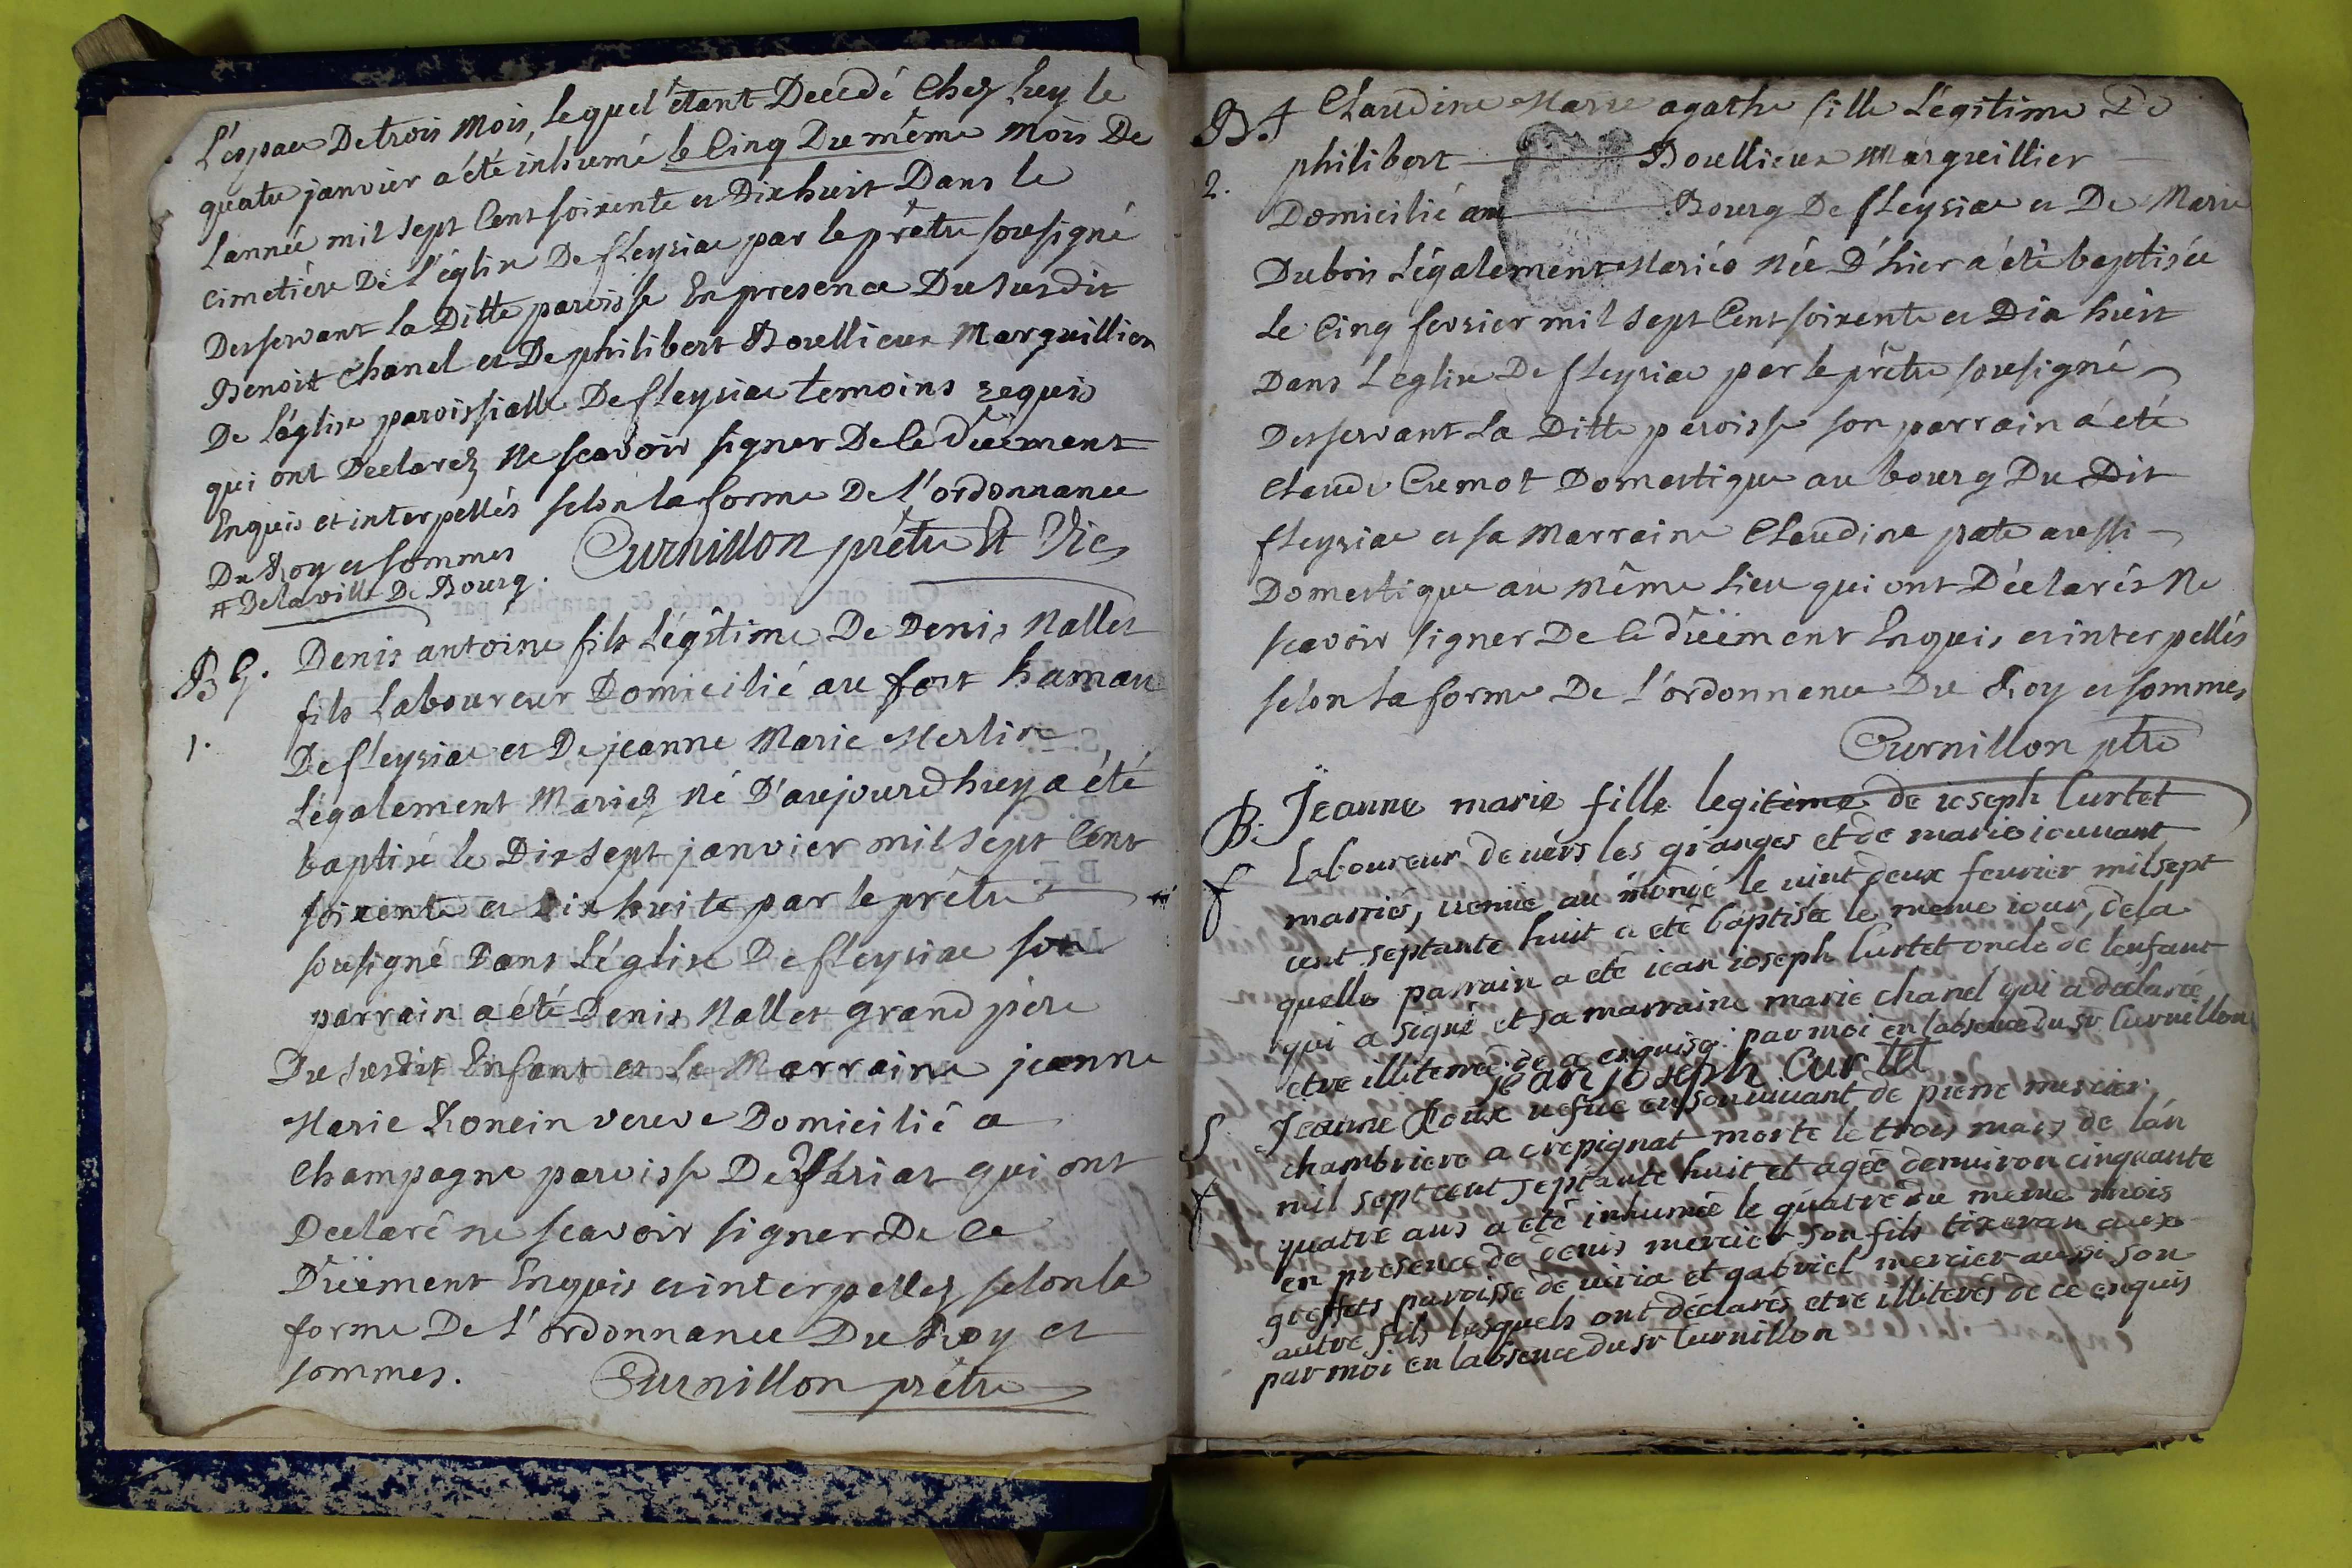 L'espace De trois Mois, lequel étant Decedé Chez luy le
quatre janvier a été inhumé le Cinq Du même Mois De
Lannée mil sept Cent soixente et Dix huit Dans le
Cimetière De L'église De fleyriac par le prêtre sousigné
Desservant la Ditte paroisse En presence Du susdit
Benoit Chanel et De philibert Boullieux Marguillier
De L'église paroissialle De fleyriac temoins requis
qui ont Declarez Ne scavoir signer De Ce Düement
Enquis et interpellés selon la forme De L'ordonnance
Du Roy et sommes Curnillon prêtre Et Vic
# De la ville De Bourg.
B G. Denis antoine fils Légitime De Denis Nallet
fils Laboureur Domicilié au fort hamau
1. De fleyriac et De jeanne Marie Merlin
Légalement Mariez Né D'aujourdhuy a été
baptisé le Dix sept janvier mil sept Cent
soixente et Dix huite par le prêtre
sousigné Dans L'église De fleyriac son
parrain a été Denis Nallet grand père
Du susdit Enfant et la Marraine jeanne
Marie Roncin veuve Domicilié a
Champagne paroisse De qui ont
Declaré ne scavoir signer De Ce
Düement Enquis et interpellez selon la
forme De L'ordonnance Du Roy et
sommes. Curnillon prêtre
B. f Claudine Marie agathe fille Légitime De
philibert Boullieux Marguillier
2. Domicilié au Bourg De fleyriac et De Marie
Dubois Légalement Mariés Née D'hier a été baptisée
Le Cinq fevrier mil sept Cent soixente et Dix huit
Dans L'eglise De fleyriac par le prêtre sousigné
Desservant La Ditte paroisse son parrain a été
Claude Cumot Domestique au bourg Du Dit
fleyriac et sa Marraine Claudine pate aussi
Domestique au Même Lieu qui ont Déclarés Ne
scavoir signer De Ce düëment Enquis et interpellés
selon La forme De L'ordonnance Du Roy et sommes
Curnillon ptre
B. Jeanne marie fille legitime de ioseph Curtet
f Laboureur de vers les granges et de marie iouuant
mariés, venüe au monde le vint deux feurier mil sept
cent septante huit a eté baptisée le meme iour, de la
quelle parrain a eté iean ioseph Curtet oncle de lenfant
qui a signé et sa marraine marie chanel qui a declarée
etre illiterée de ce enquise par moi en labsence du sr Curnillon
jean joseph Cur tet
S. Jeanne Roux vefue en son viuant de pierre mercier
chambriere a crepignat morte le trois mars de lan
f mil sept cent septante huit et agée denuiron cinquante
quatre ans a eté inhumée le quatre du meme mois
en presence de denis mercier son fils tixeran aux
greffets paroisse de viria et gabriel mercier aussi son
autre fils lesquels ont déclarés etre illiterés de ce enquis
par moi en labsence du sr Curnillon